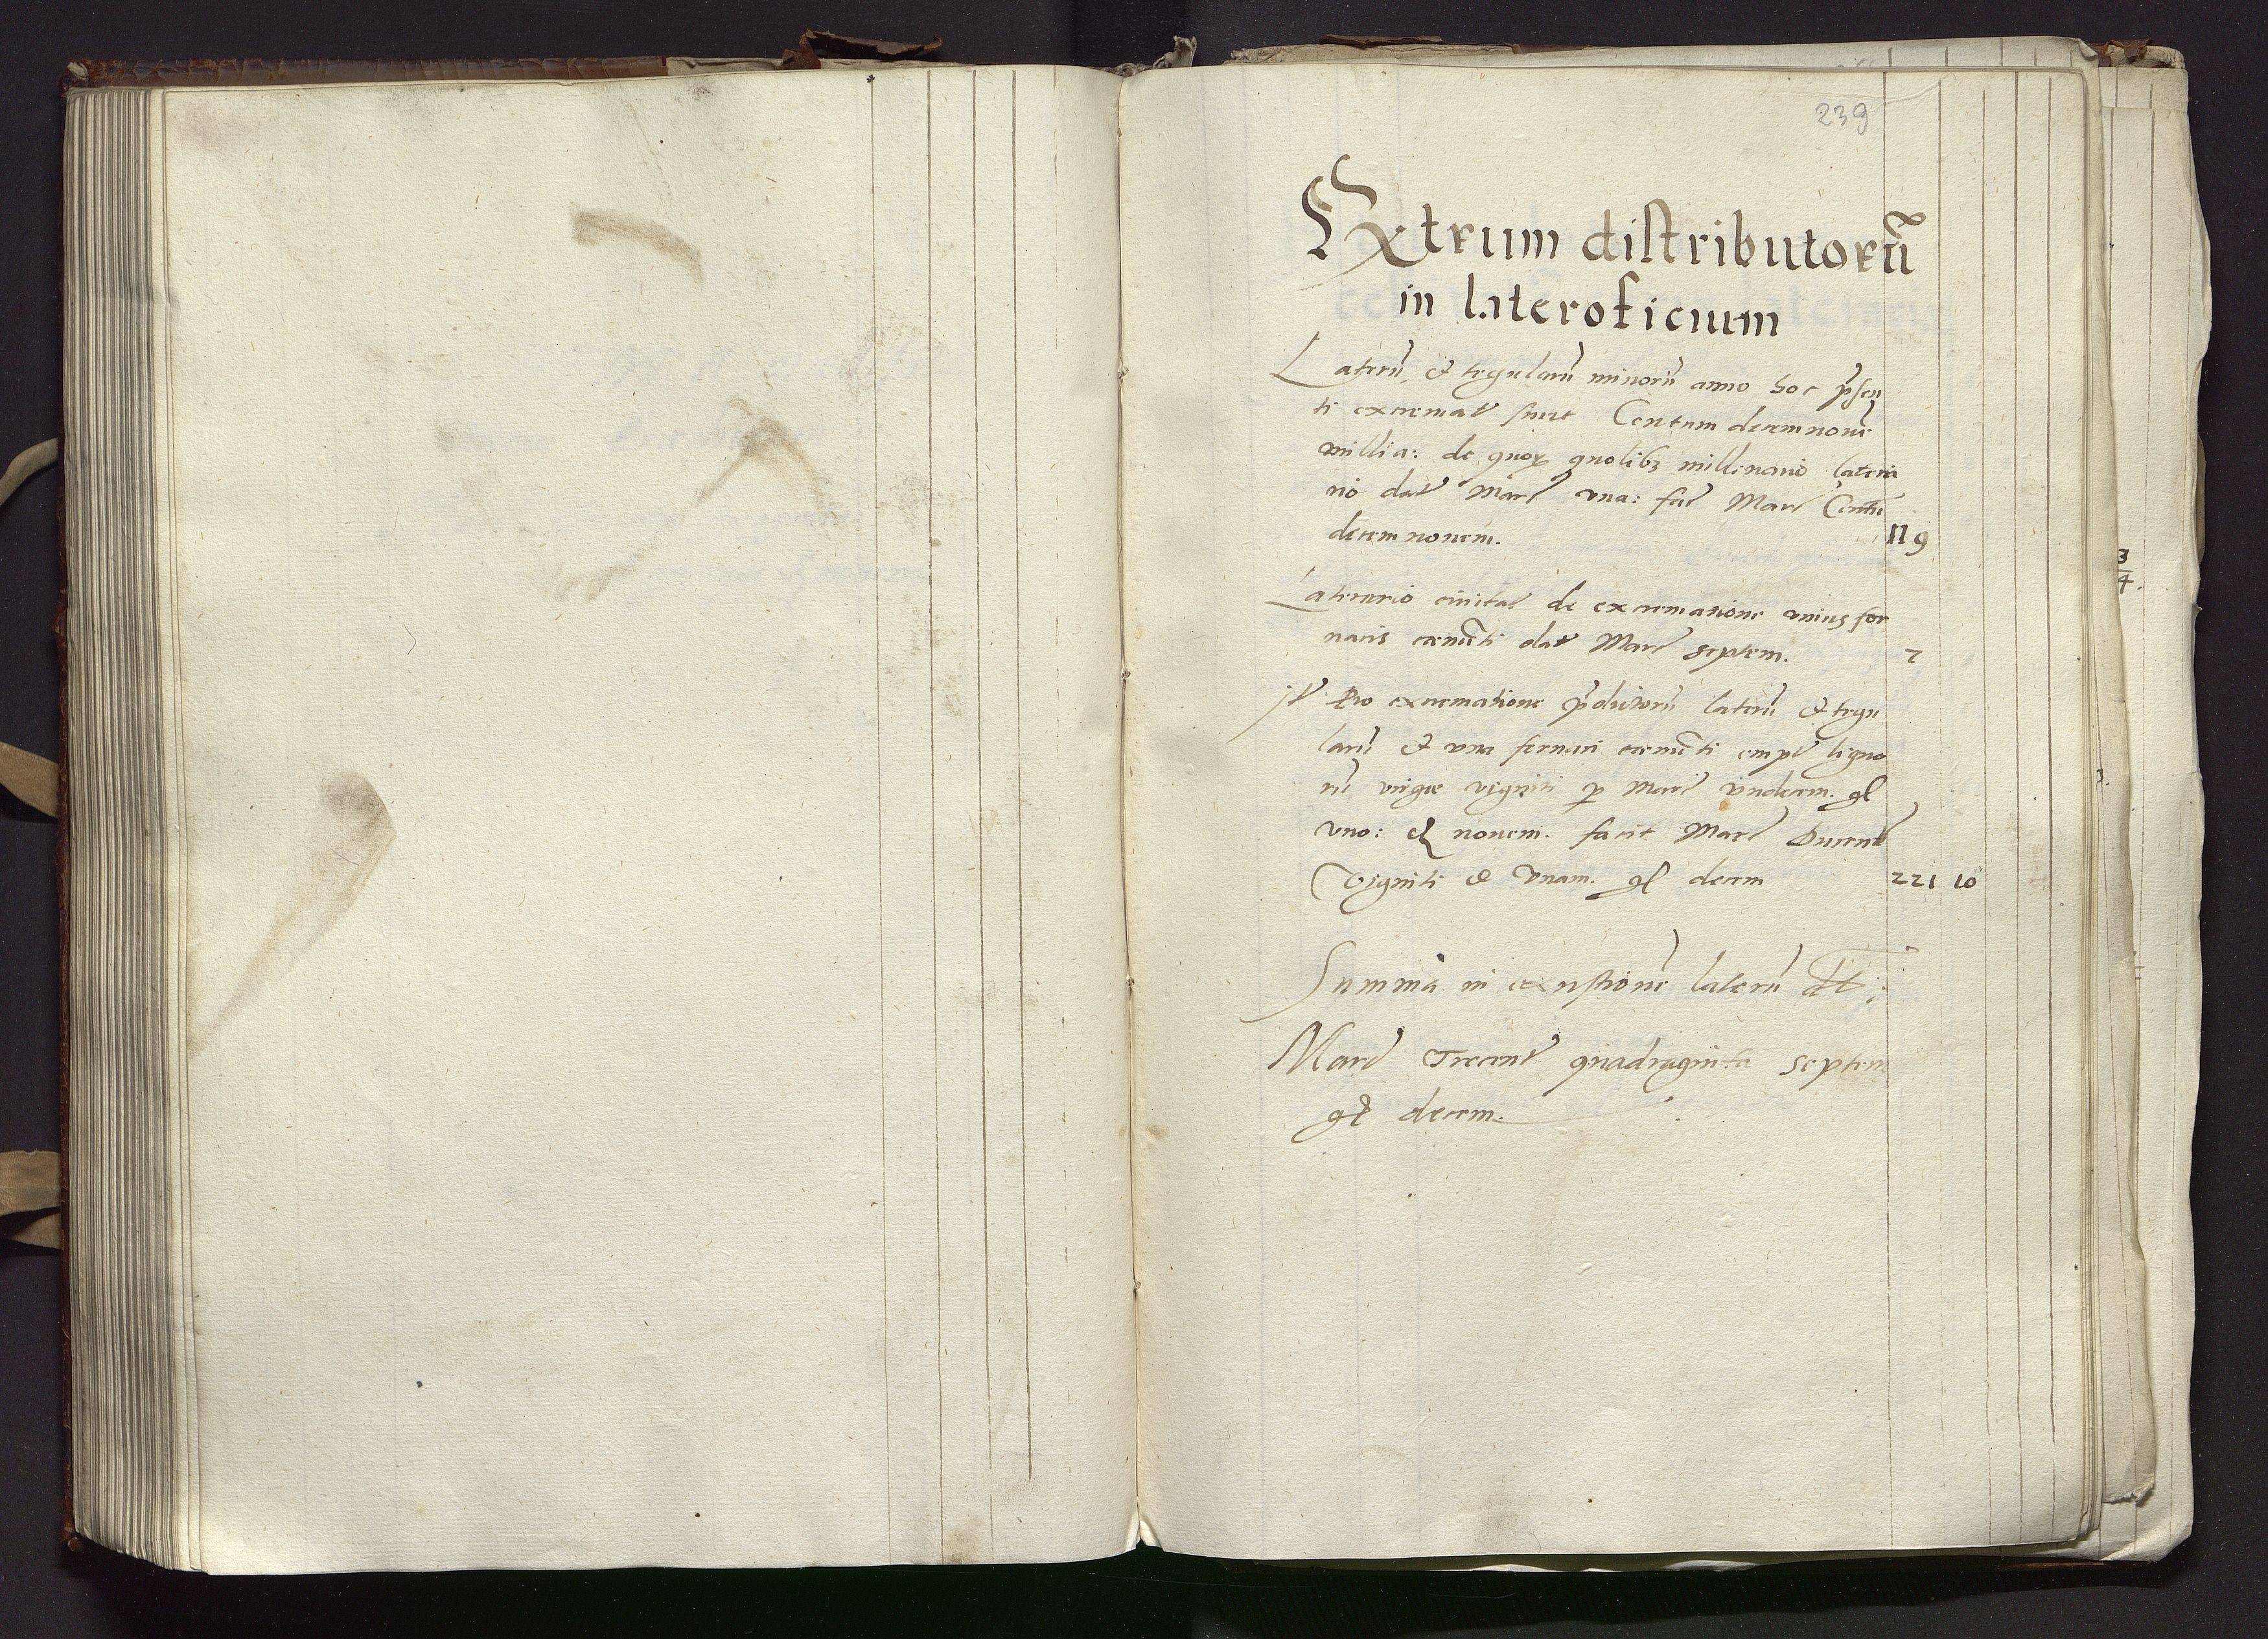 239
Extrum distributorū
in lateroficium
Laterū et tegularū minorū anno hoc p̄sen
ti excremat sunt Centum decemnovē
millia: de quoꝝ quolibꝫ millenario lateria
rio dat Marc una: fac Marc Centū
decem novem. 119
Laterario civitat de excrematione unius for
nacis cementi dat Marc septem. 7
It Pro excrematione p̄dictorū laterū et tegu
larū et una fornaci cementi empt ligno
rū virgae viginti p Marc undecim. gr
uno: novem. facit Marc Ducent
Viginti et Unam. gr decem 221 10
Summa in exustionē laterū
Marc Trecent quadraginta septem
gr decem.
3
4